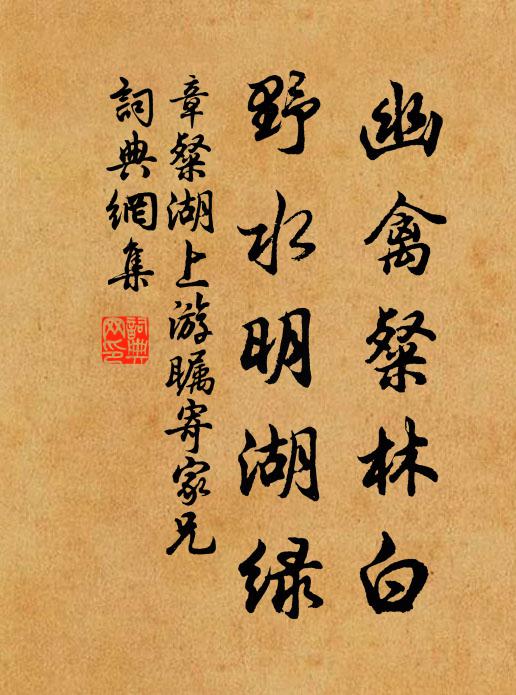 幽禽粲林白
野水明湖绿
章粲湖上游瞩寄家兄
詞典網集
詞典網印